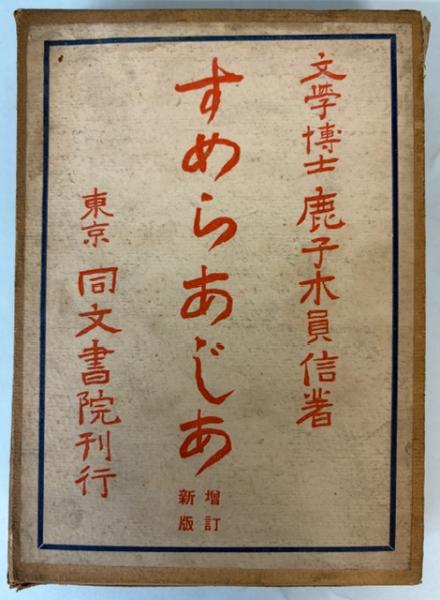 文學博士 鹿子木員信著
すめらあじあ
増訂
新版
東京 同文書院刊行